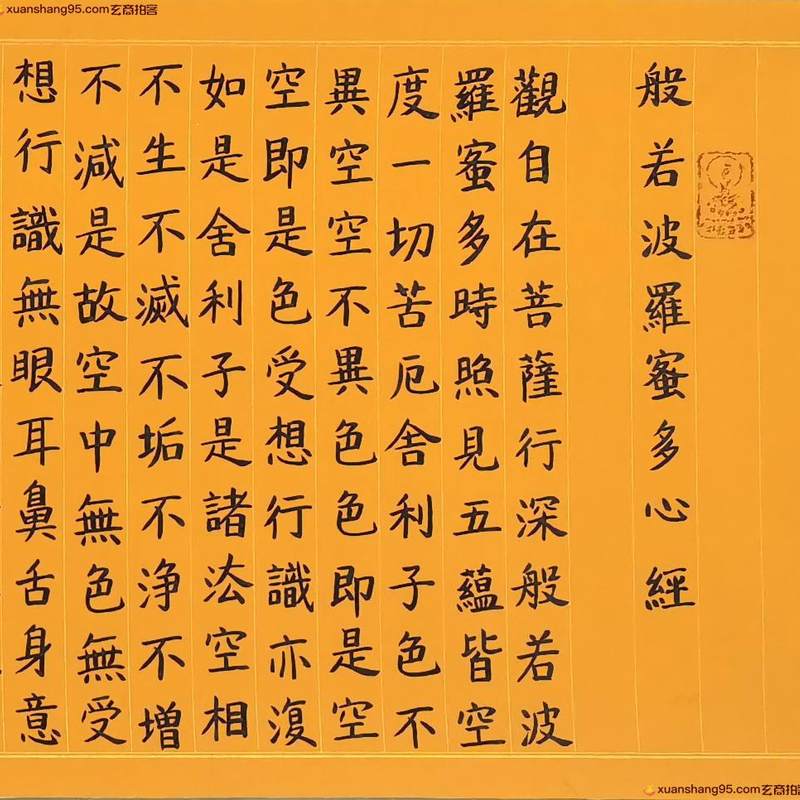 xuanshang95.com玄商拍客
般若波羅蜜多心經
觀自在菩薩行深般若波
羅蜜多時照見五蘊皆空
度一切苦厄舍利子色不
異空空不異色色即是空
空即是色受想行識亦復
如是舍利子是諸法空相
不生不滅不垢不淨不增
不減是故空中無色無受
想行識無眼耳鼻舌身意
xuanshang95.com玄商拍客